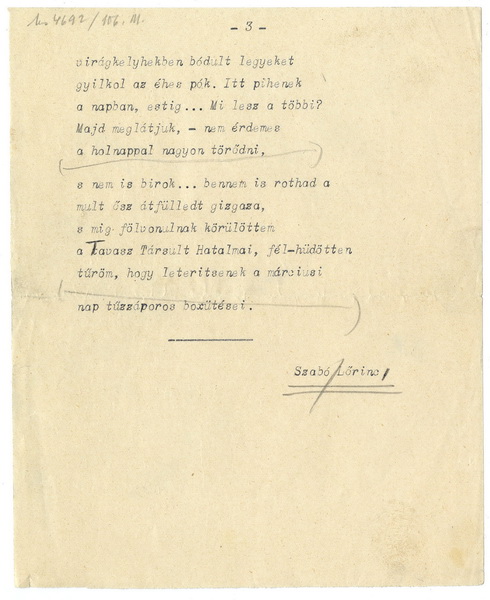 Ms 4692/106. Al.
- 3 -
virágkelyhekben bódult legyeket
gyilkol az éhes pók. Itt pihenek
a napban, estig... Mi lesz a többi?
Majd meglátjuk, - nem érdemes
a holnappal nagyon törődni,
s nem is birok... bennem is rothad a
mult ősz átfülledt gizgaza,
s mig fölvonulnak körülöttem
a Tavasz Társult Hatalmai, fél-hüdötten
tűröm, hogy leteritsenek a márciusi
nap tűzzáporos boxütései.
Szabó Lőrinc